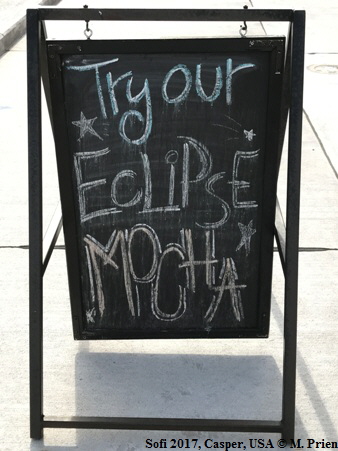 Try our
ECLiPSE
MOCHA
Sofi 2017, Casper, USA © M. Prien